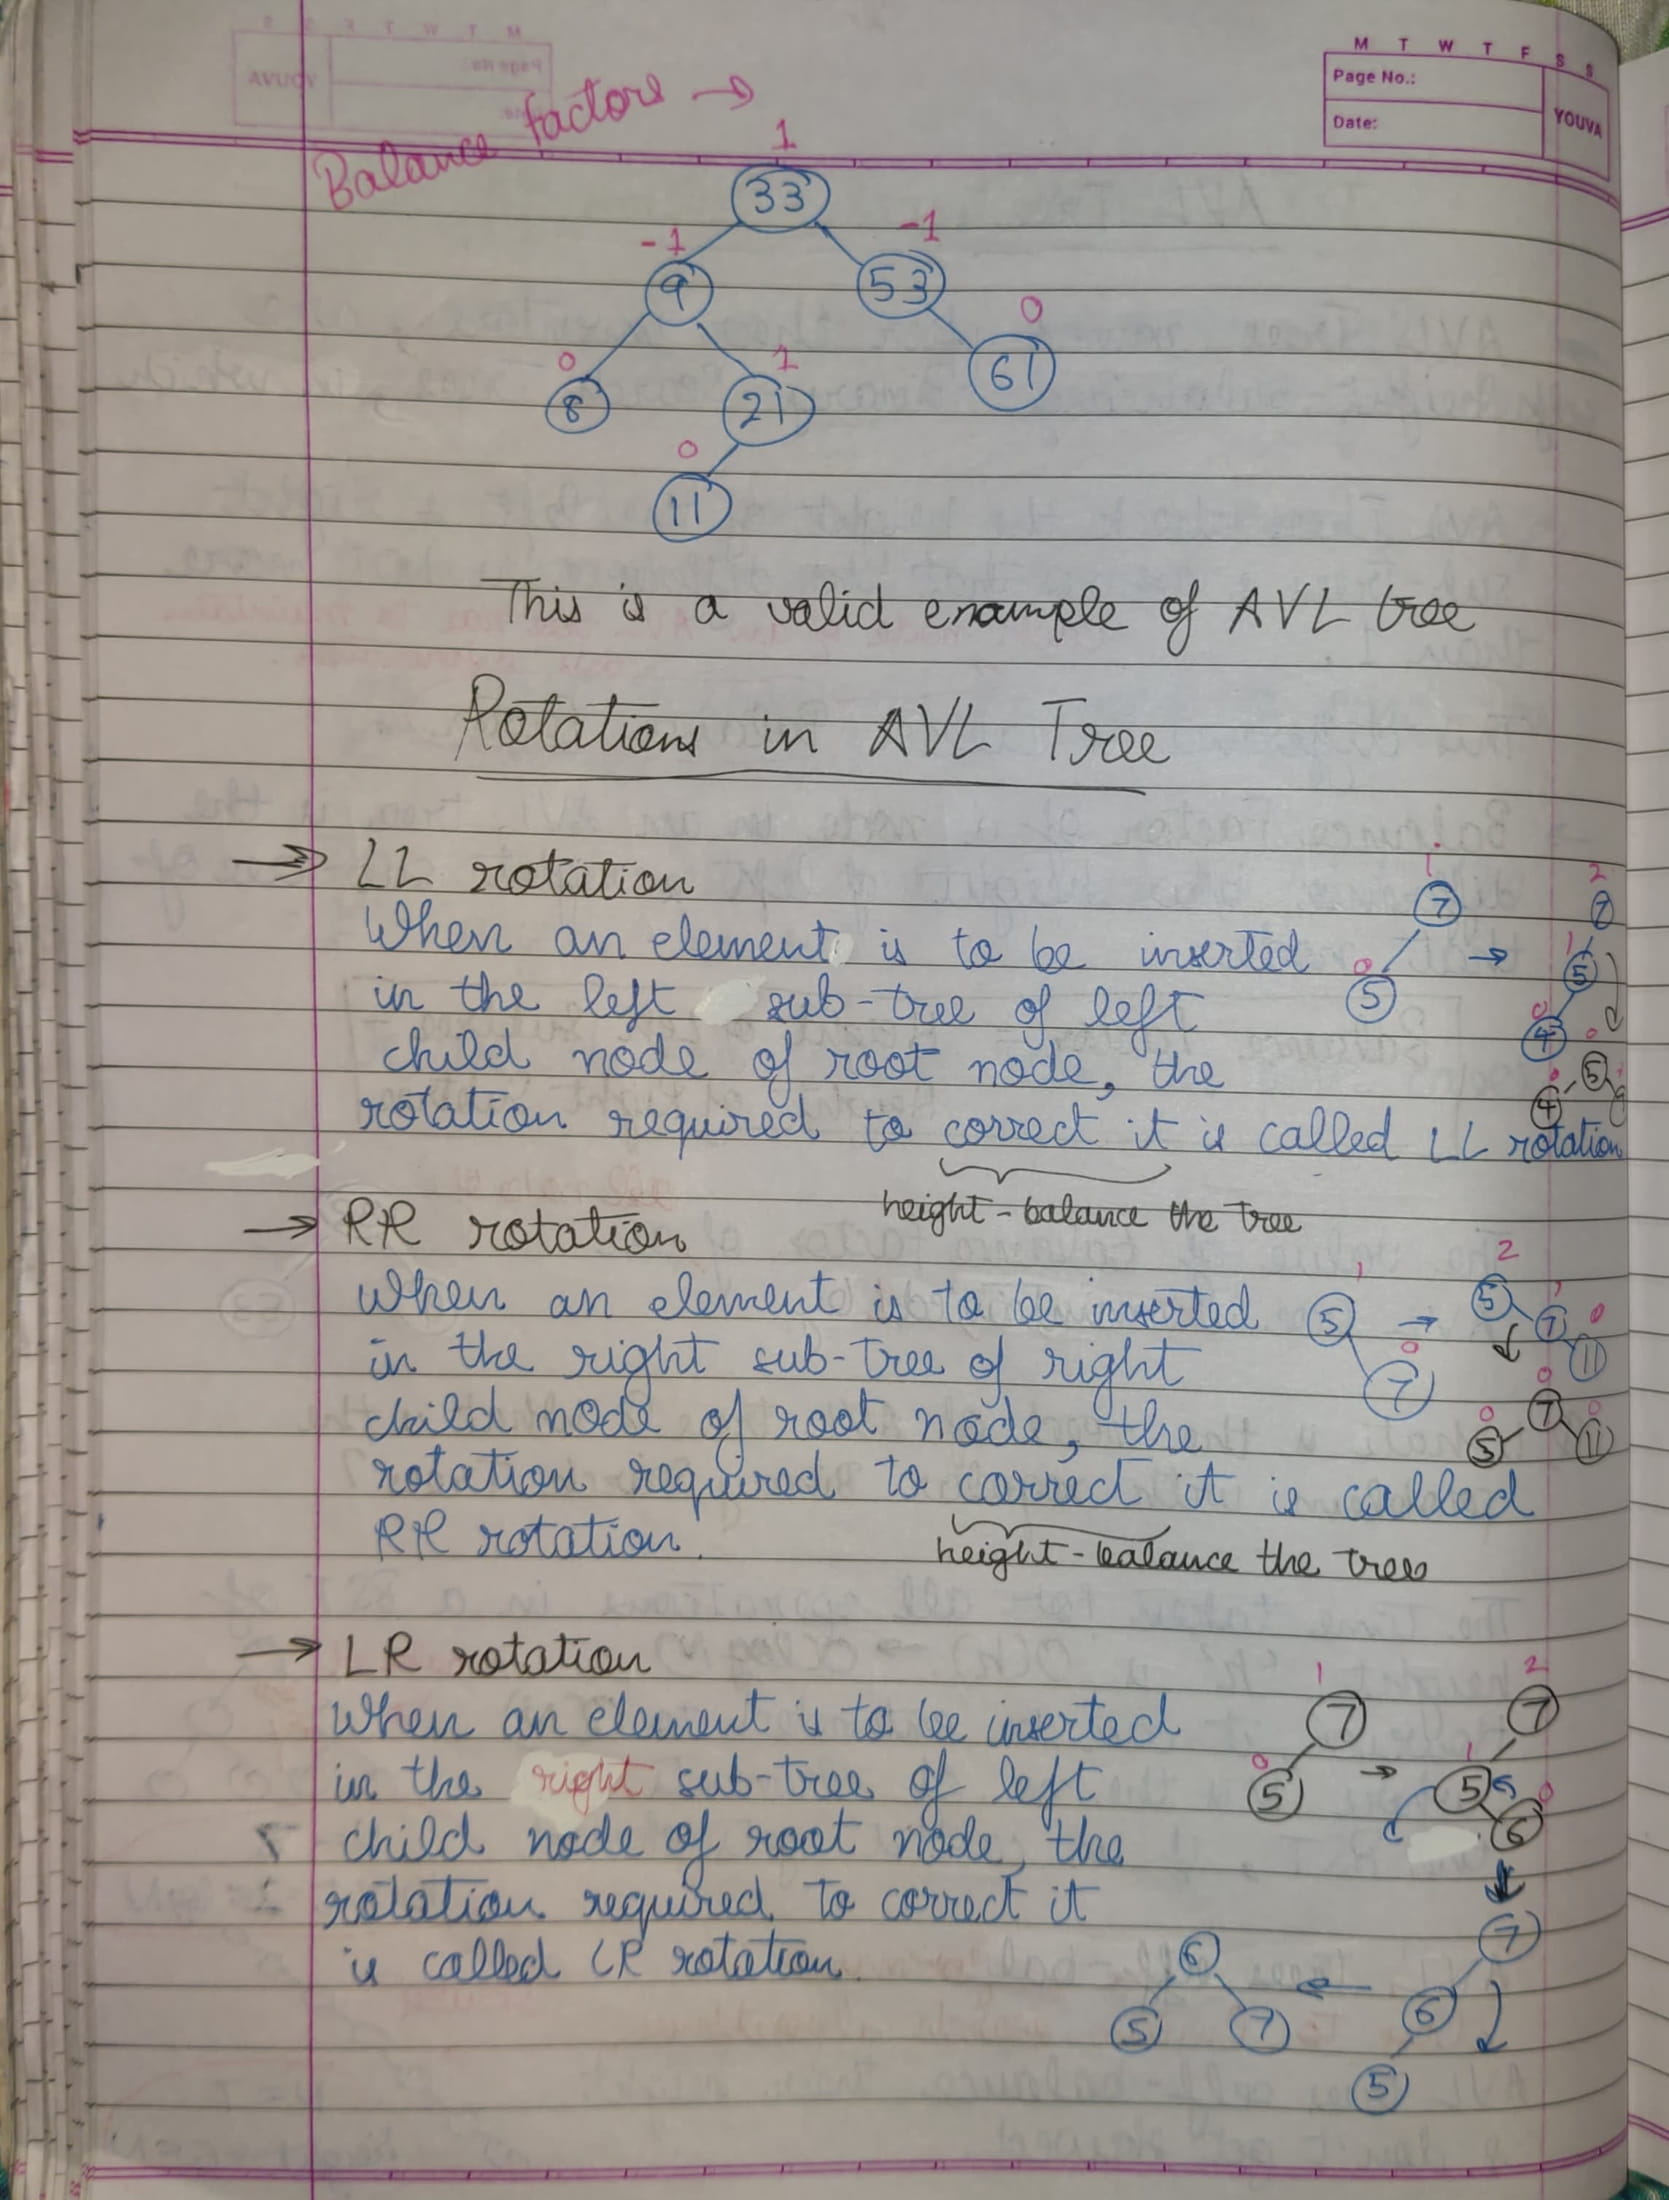 M T W T F S S
Page No.:
Date:
YOUVA
Balance factors →
1
33
-1 -1
9 53
0 1 0
8 21 61
0
11
This is a valid example of AVL tree
Rotations in AVL Tree
→ LL rotation
When an element is to be inserted
in the left sub-tree of left
child node of root node, the
rotation required to correct it is called LL rotation
height-balance the tree
1
7
0
5
→
2
7
1
5
0
4
0
5
0
4
→ RR rotation
When an element is to be inserted
in the right sub-tree of right
child node of root node, the
rotation required to correct it is called
RR rotation.
height-balance the tree
1
5
0
7
→
2
5
1
7
0
11
0
7
0 0
5 11
→ LR rotation
When an element is to be inserted
in the right sub-tree of left
child node of root node, the
rotation required to correct it
is called LR rotation.
1
7
0
5
→
2
7
1
5
0
6
7
6
5
←
6
5 7